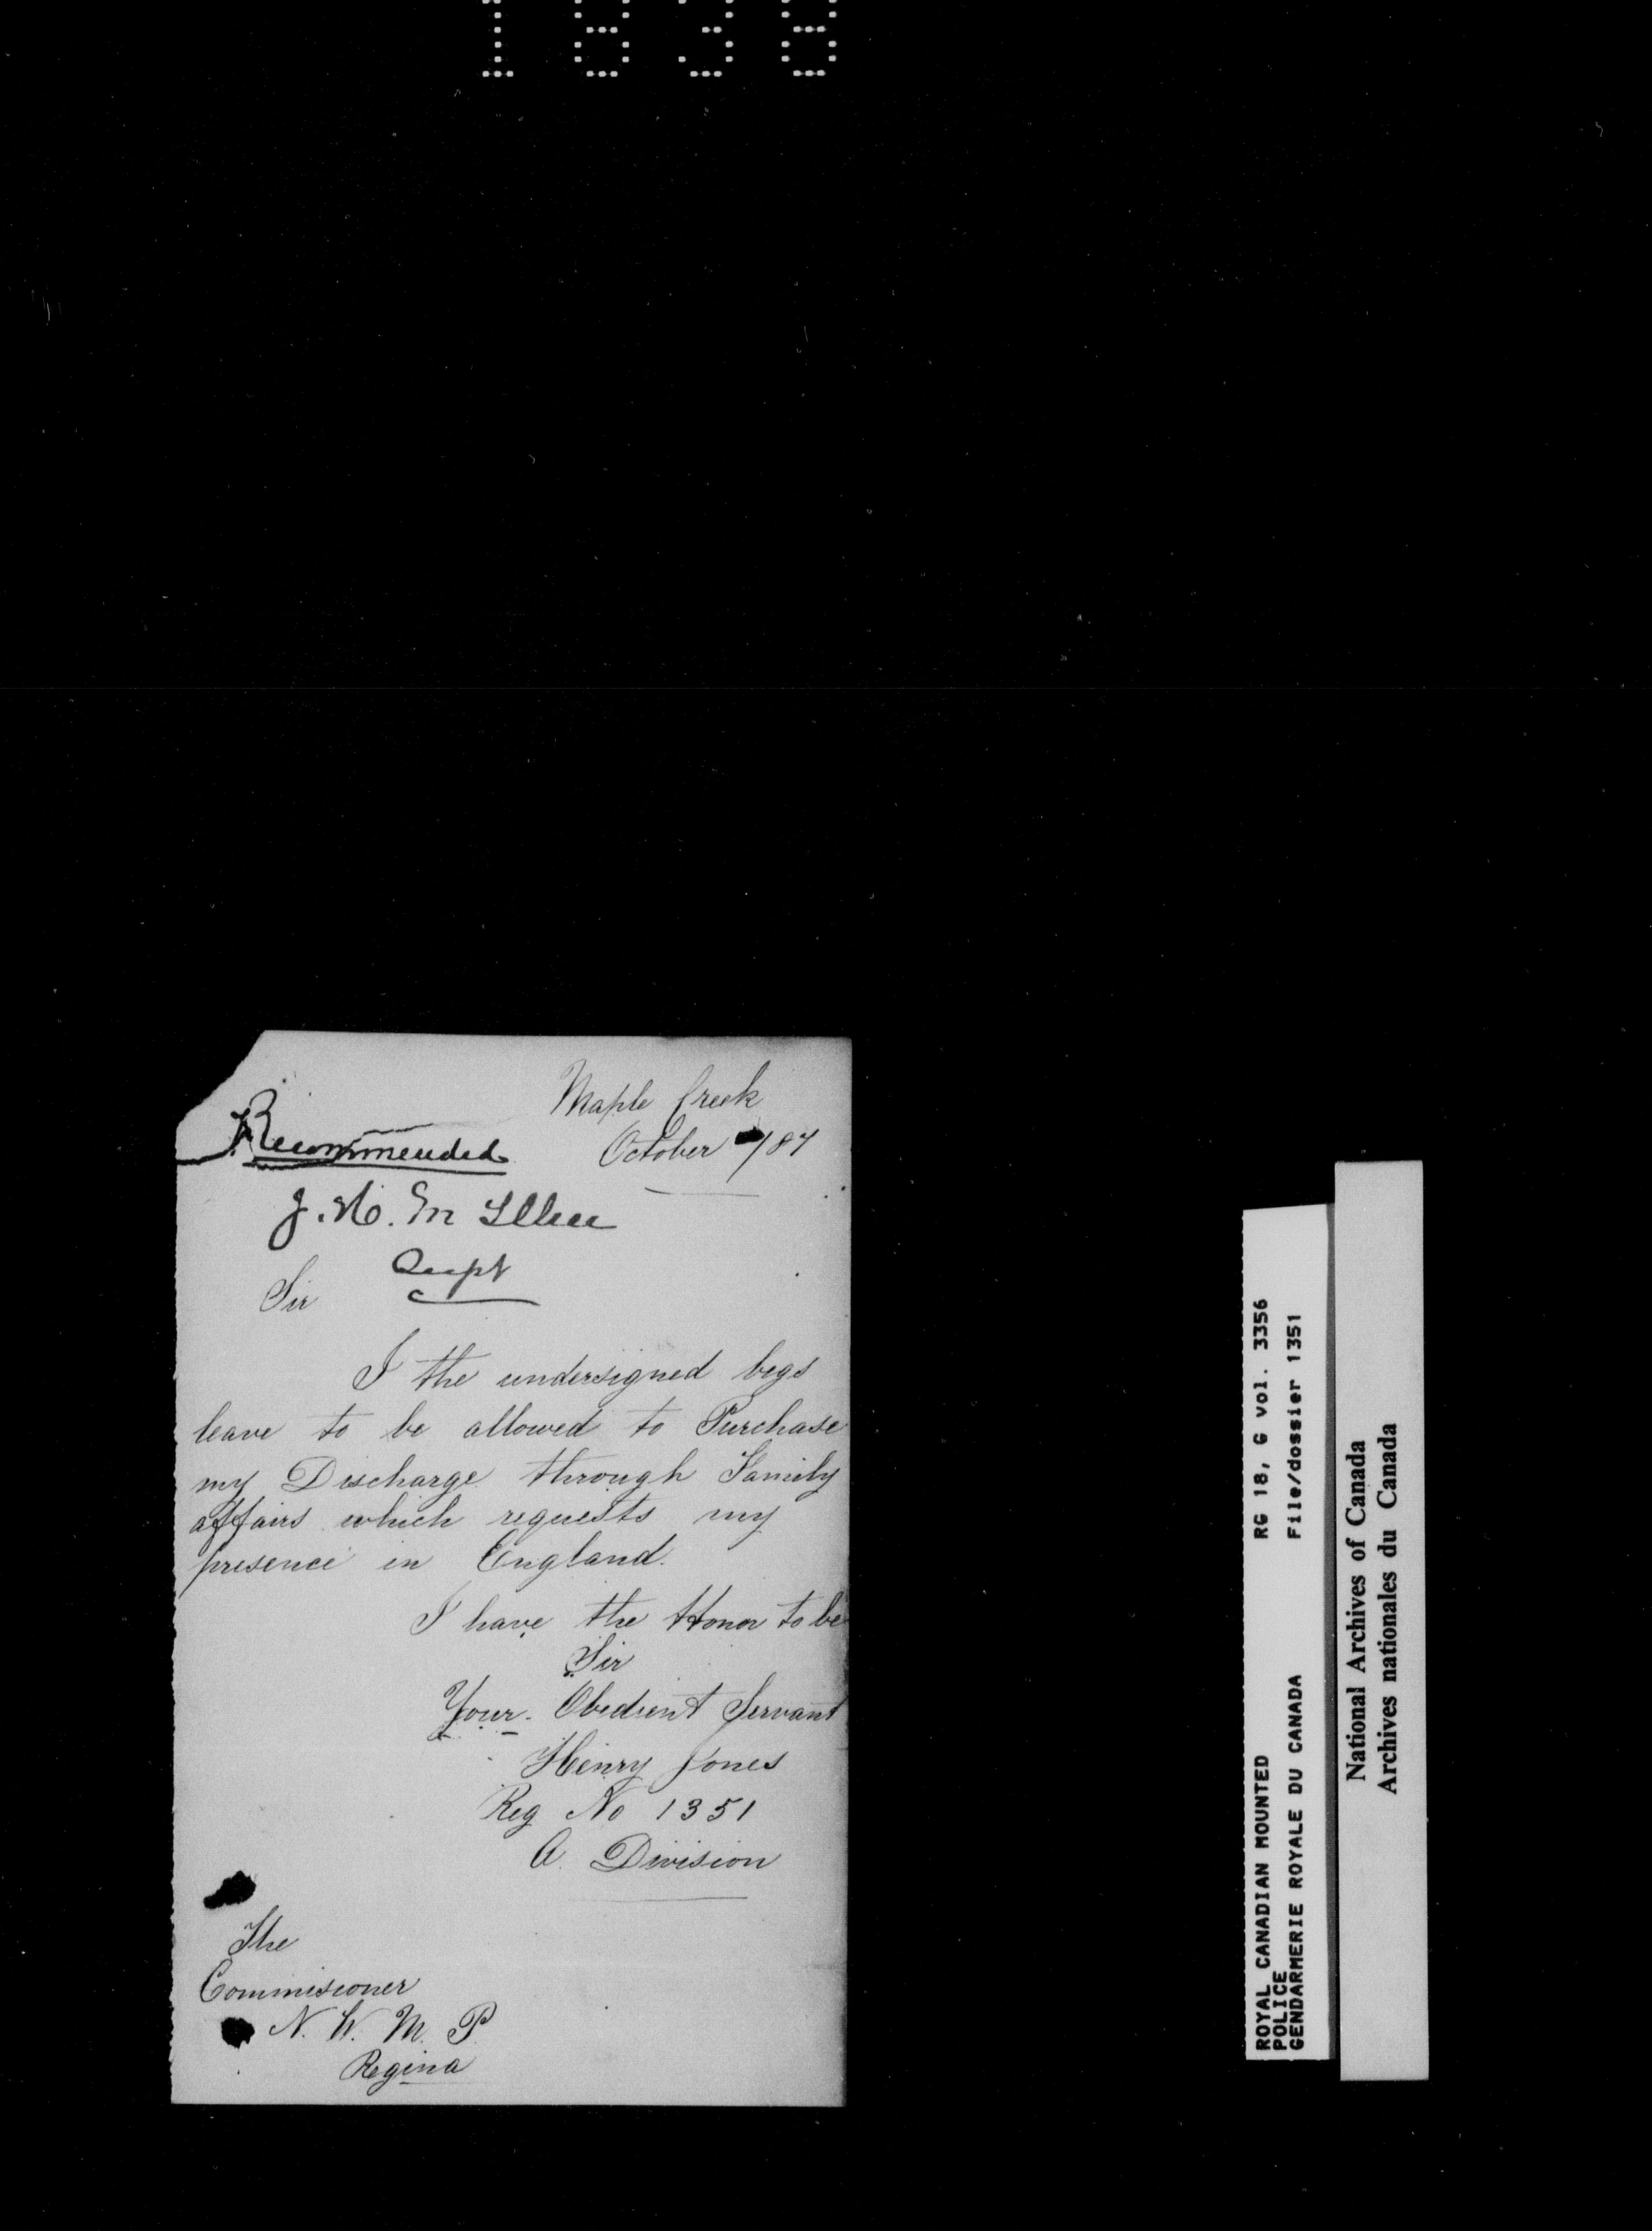 1838
Maple Creek
October /87
Recommended
J. H. McIllree
Supt
Sir
I the undersigned begs
leave to be allowed to Purchase
my Discharge through Family
affairs which requests my
presence in England.
I have the Honor to be
Sir
Your. Obedient Servant
Henry Jones
Reg No 1351
A. Division
The
Commisioner
N. W. M. P
Regina
ROYAL CANADIAN MOUNTED RG 18, G vol. 3356
POLICE
GENDARMERIE ROYALE DU CANADA File/dossier 1351
National Archives of Canada
Archives nationales du Canada